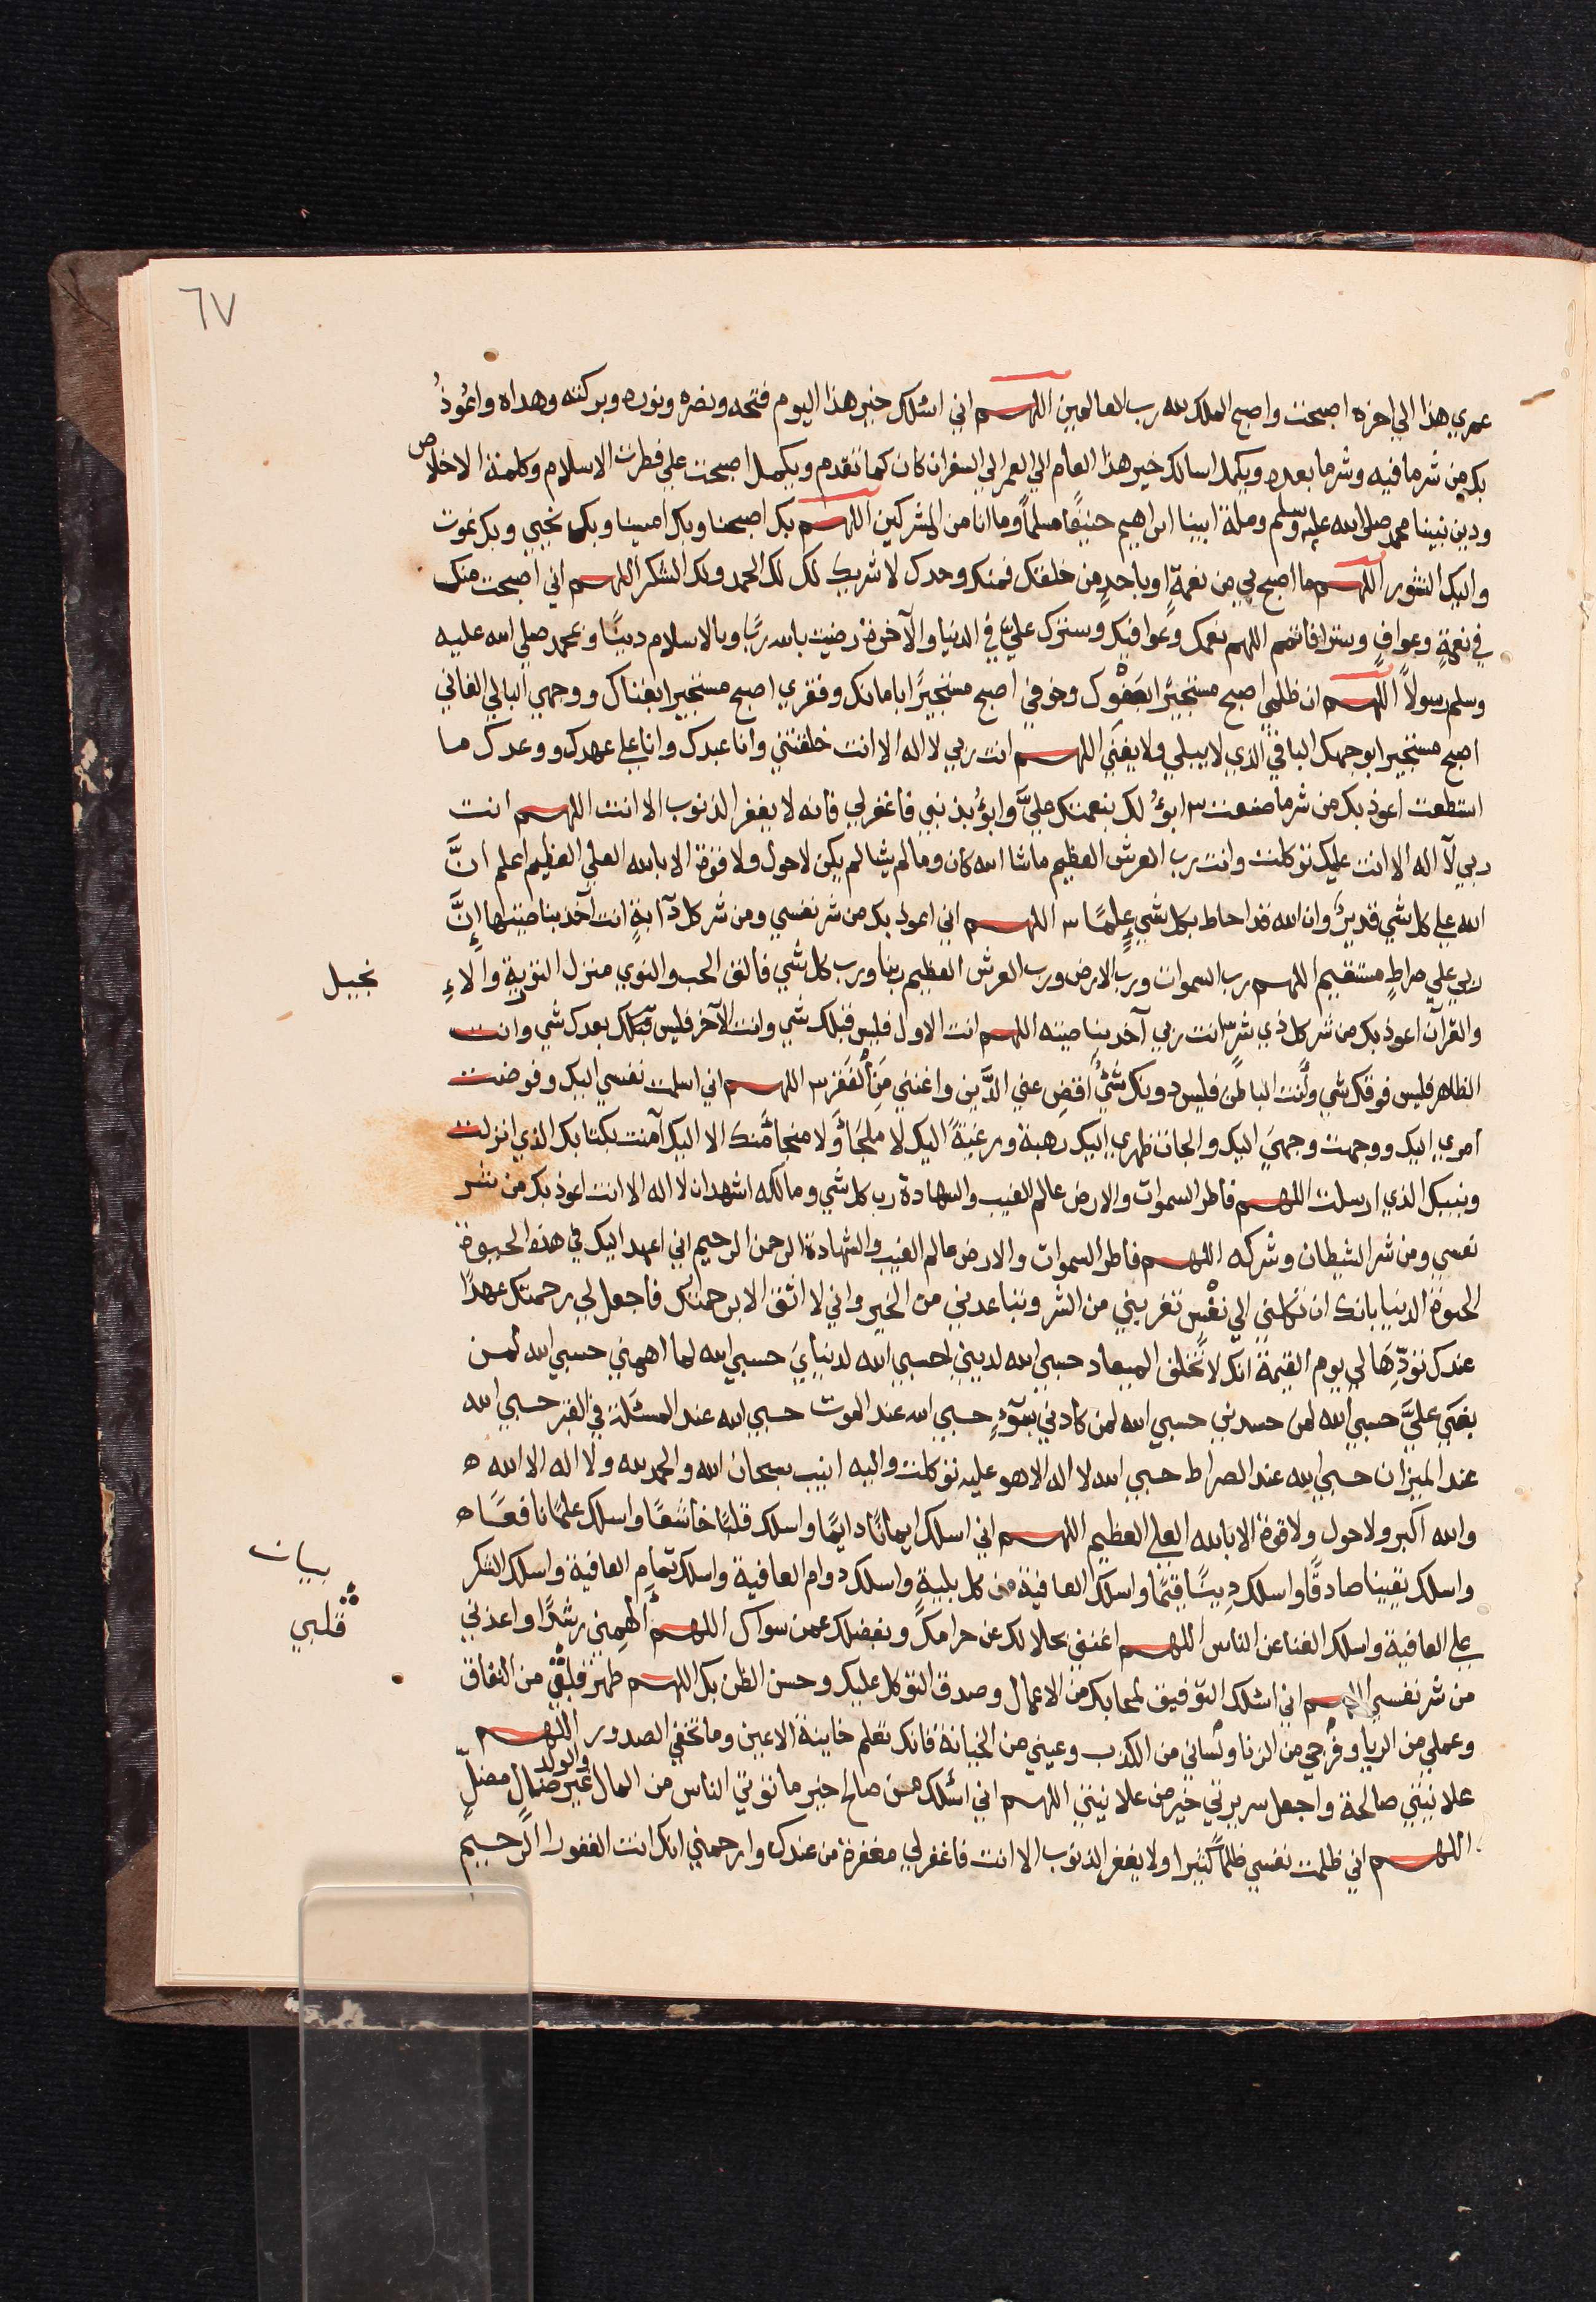 ٦٧
عمري هذا الي اخره اصبحت واصبح الملك لله رب العالمين اللهم اني اسئلك خير هذا اليوم فتحه ونصره ونوره وبركته وهداه واعُوذُ
بك من شر ما فيه وشر ما بعده ويكمل اسالك خير هذا العام الي العمر الي السفر ان كان كما تقدم ويكمل اصبحت علي فطرت الاسلام وكلمة الاخلاص
ودين نبينا محمد صلي الله عليه وسلم وملة ابينا ابراهيم حنيفًا مسلمًا وما انا من المشركين اللهم بك اصبحنا وبك امسينا وبك نحيي وبك نموت
واليك النشور اللهم ما اصبح بي من نعمةٍ او باحدٍ من خلقك فمنك وحدك لا شريك لك لك الحمد ولك الشكر اللهم اني اصبحت منك
في نعمةٍ وعوافٍ وستر فاتمم اللهم نعمك وعوافيك وسترك عليَّ في الدنيا والآخرة رضيت بالله ربًا وبالاسلام دينًا وبمحمد صلي الله عليه
وسلم رسولاً اللهم ان ظلمي اصبح مستجيرًا بعفوك وخوفي اصبح مستجيرًا بامانك وفقري اصبح مستجيرا بغناك ووجهي البالي الفاني
اصبح مستجيرا بوجهك الباقي الذي لا يبلي ولا يفني اللهم انت ربي لا اله الا انت خلقتني وانا عبدك وانا علي عهدك ووعدك ما
استطعت اعوذ بك من شر ما صنعت ٣ ابوءُ لك بنعمتك عليَّ وابوءُ بذنبي فاغفر لي فانه لا يغفر الذنوب الا انت اللهم انت
ربي لآ اله الا انت عليك توكلت وانت رب العرش العظيم ماشا الله كان وما لم يشا لم يكن لا حول ولا قوة الا بالله العلي العظيم اعلم انَّ
الله علي كل شي قديرٌ وان الله قد احاط بكل شيءٍ علمًا ٣ اللهم اني اعوذ بك من شر نفسي ومن شر كل دآبةٍ انت آخذ بناصيتها اِنَّ
ربي علي صراطٍ مستقيم اللهم رب السموات ورب الارض ورب العرش العظيم ربنا ورب كل شي فالق الحب والنوي منزل التورية والاءِ
نجيل
والقرآن اعوذ بك من شر كل ذي شرٍ انت ربي آخذ بناصيته اللهم انت الاول فليس قبلك شي وانت الآخر فليس بعدك شي وانت
الظاهر فليس فوقك شي وانت الباطن فليس دونك شئٌ اقضِ عني الدَّين واغنني مِن الفقر ٣ اللهم اني اسلمت نفسي اليك وفوضت
امري اليك ووجهت وجهي اليك والجات ظهري اليك رهبة ورغبةً اليك لا ملجأَ ولا منجا مِنك الا اليك آمنت بكتابك الذي انزلت
ونبيك الذي ارسلت اللهم فاطر السموات والارض عالم الغيب والشهادة رب كل شي ومالكه اشهد ان لا اله الا انت اعوذ بك من شر
نفسي ومن شر الشيطان وشركه اللهم فاطر السموات والارض عالم الغيب والشهادة الرحمن الرحيم اني اعهد اليك في هذه الحيوة
الحيوة الدنيا بانك ان تكلني الي نفسٍ تقربني من الشر وتباعدني من الخير واني لا اثق الا برحمتك فاجعل لي رحمتك عهدًا
عندك تؤدِّها لي يوم القيمة انك لا تخلف الميعاد حسبي الله لديني حسبي الله لدنيايَ حسبي الله لما اهمني حسبي الله لمن
بغي عليَّ حسبي الله لمن حسدني حسبي الله لمن كادني بسوءٍ حسبي الله عند الموت حسبي الله عند المسئلة في القبر حسبي الله
عند الميزان حسبي الله عند الصراط حسبي الله لا اله الا هو عليه توكلت واليه انيب سبحان الله والحمد لله ولا اله الا الله ه
والله اكبر ولا حول ولا قوة الا بالله العلي العظيم اللهم اني اسلك ايمانًا دايمًا واسلك قلبًا خاشعًا واسلك علمًا نافعًا ه
واسلك يقينا صادقًا واسلك دِينًا قيّمًا واسلك العافية من كل بلية واسلك دوام العافية واسلك تمام العافية واسلك الشكر
بيان
قلبي
علي العافية واسلك الغنا عن الناس اللهم اغنني بحلالك عن حرامك وبفضلك عمن سواك اللهم الهمني رشدًا واعذني
من شر نفسي اللهم اني اسئلك التوفيق لمحابك من الاعمال وصدق التوكل عليك وحسن الظن بك اللهم طهر قلبي من النفاق
وعملي من الريا وفرجي من الزنا ولساني من الكذب وعيني من الخيانة فانك تعلم خاينة الاعين وما تخفي الصدور اللهم
علانيتي صالحة واجعل سريرتي خير من علانيتي اللهم اني اسئلك من صالح خير ما توتي الناس من المال والولد غير ضالٍ مضلٍ
اللهم اني ظلمت نفسي ظلمًا كثيرا ولا يغفر الذنوب الا انت فاغفر لي مغفرة من عندك وارحمني انك انت الغفور الرحيم